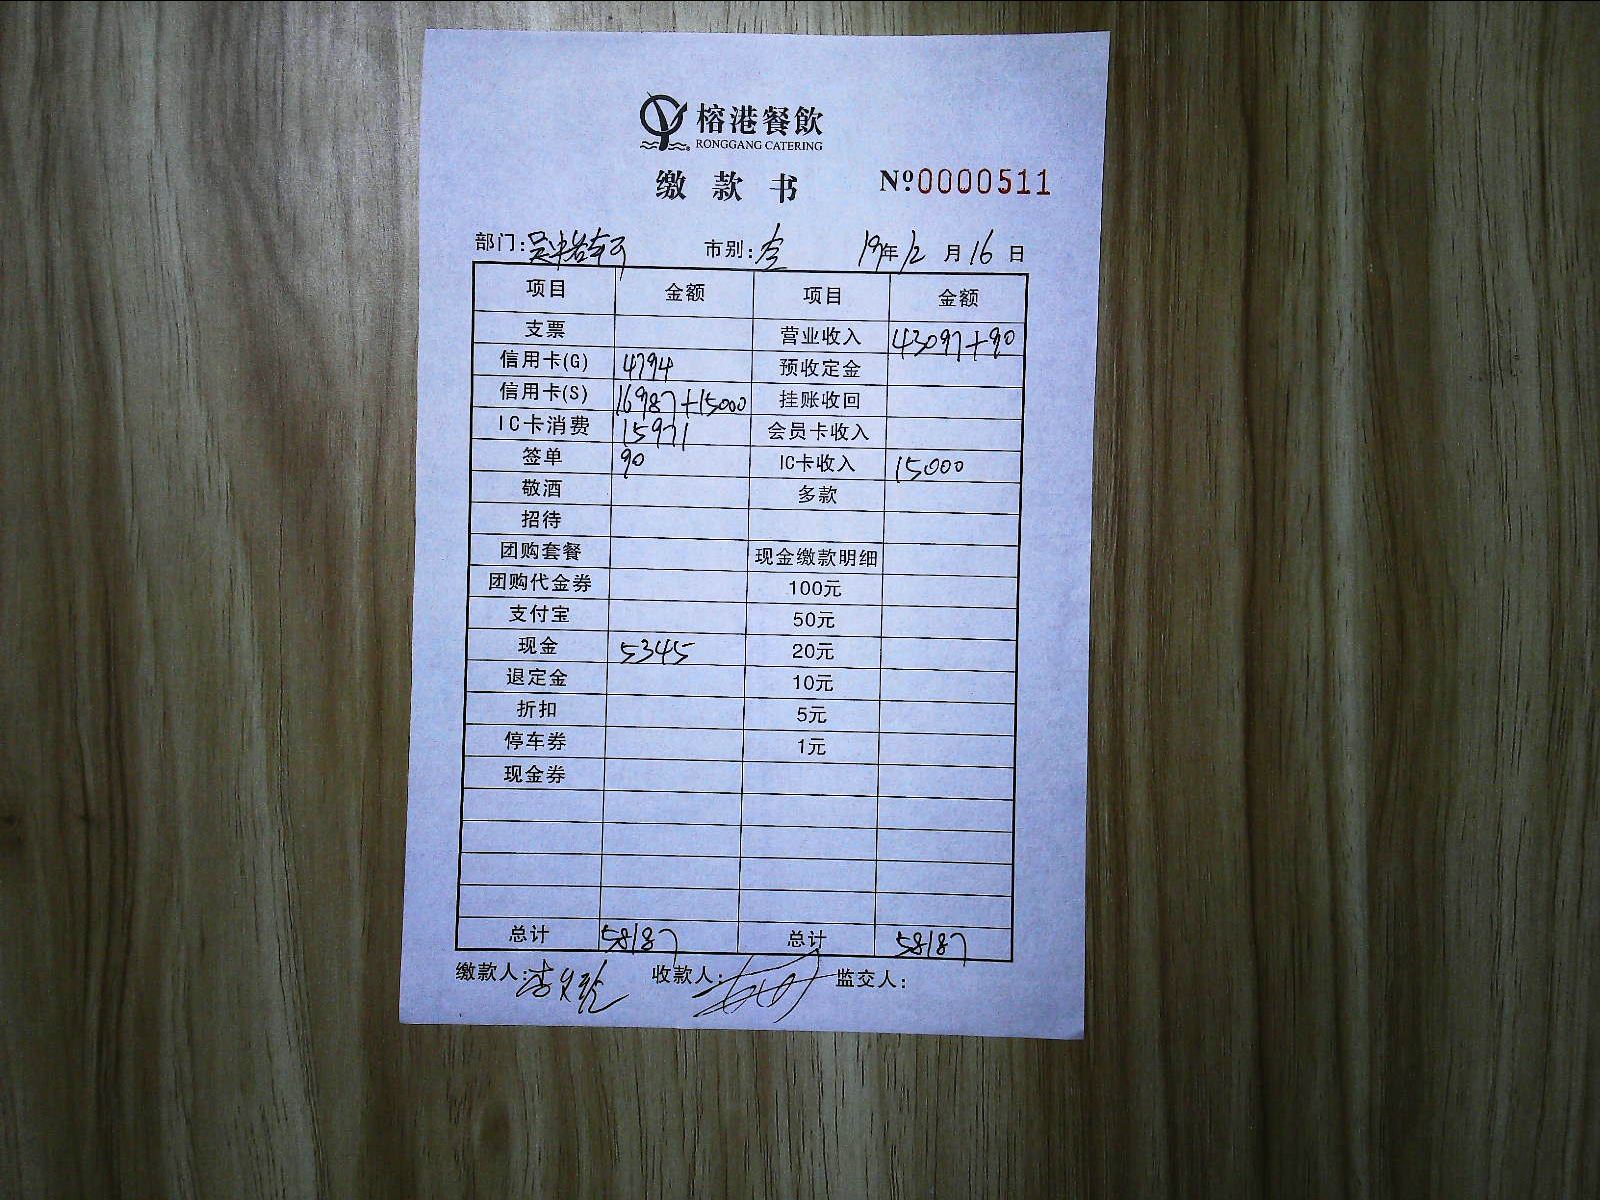 榕港餐飲
RONGGANG CATERING
缴款书 Nº0000511
部门: 市别: 19年12月16日
项目 金额 项目 金额
支票 营业收入 43097+90
信用卡(G) 4794 预收定金
信用卡(S) 16987+15000 挂账收回
IC卡消费 15971 会员卡收入
签单 90 IC卡收入 15000
敬酒 多款
招待
团购套餐 现金缴款明细
团购代金券 100元
支付宝 50元
现金 5345 20元
退定金 10元
折扣 5元
停车券 1元
现金券
总计 58187 总计 58187
缴款人: 收款人: 监交人: